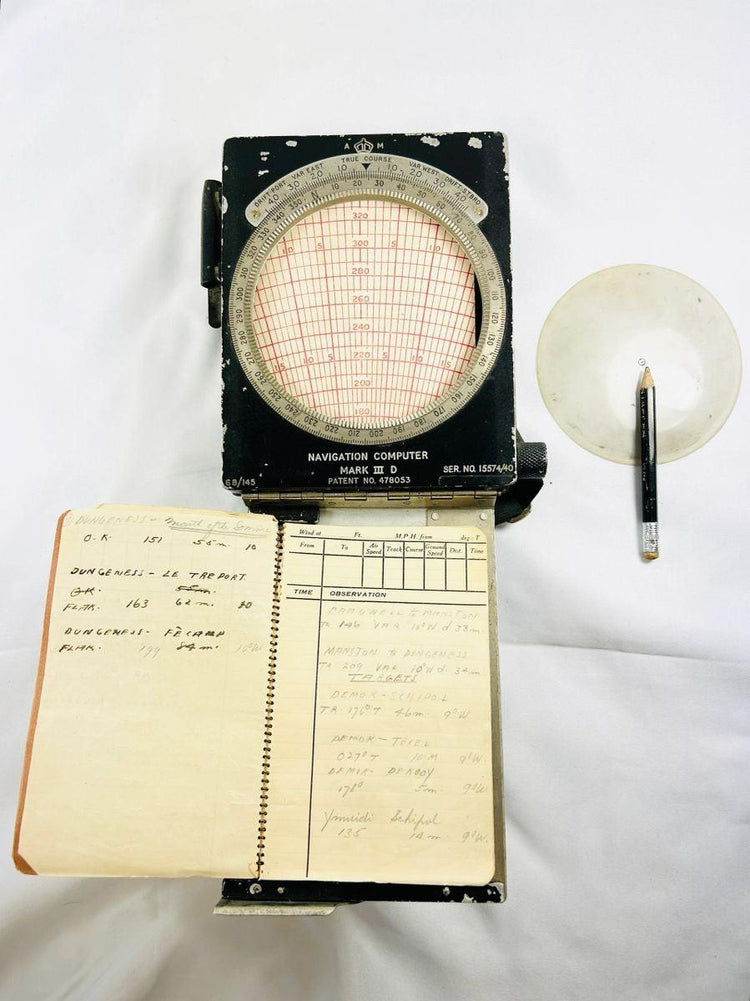 A M
TRUE COURSE
DRIFT.PORT VAR EAST VAR WEST DRIFT.STBD
40 30 20 10 10 20 30 40
320
10 5 300 5 10
280
260
240
15 10 5 220 5 10 15
200
180
NAVIGATION COMPUTER
MARK III D
6B/145 PATENT NO. 478053 SER. NO. 15574/40
DUNGENESS - Mouth of the Somme
O.K. 151 55 m. 10
DUNGENESS - LE TREPORT
FLAK. 163 62 m. 10
DUNGENESS - FÉCAMP
FLAK. 199 84 m. 10°W
Wind at Ft. M.P.H. from deg. T
From To Air Speed Track Course Ground Speed Dist. Time
TIME OBSERVATION
TO MANSTON
Tr 146 VAR 10°W d 33 m.
MANSTON to DUNGENESS
Tr 209 VAR 10°W d. 34 m
TARGETS
DEMOK - SCHIPOL
TR. 176°T 46 m. 9°W
DEMOK - TEXEL
027°T 10 M 9°W.
DEMOK - DEKOOY
178° 5 m. 9°W
Ymuidi Schipol
135 14 m. 9°W.